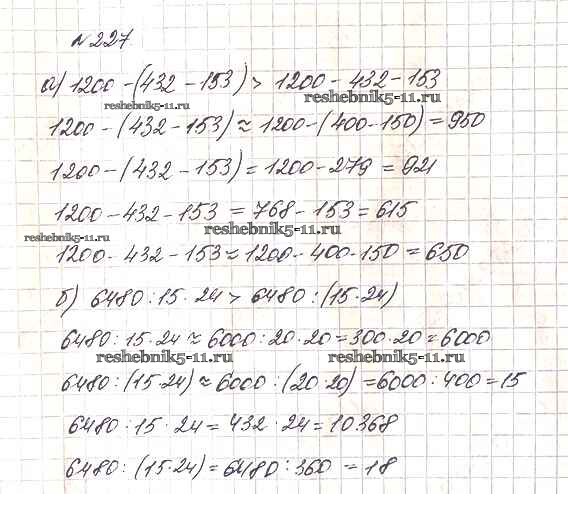 №227.
а) 1200 - (432 - 153) > 1200 - 432 - 153
reshebnik5-11.ru
reshebnik5-11.ru
1200 - (432 - 153) ≈ 1200 - (400 - 150) = 950
1200 - (432 - 153) = 1200 - 279 = 921
1200 - 432 - 153 = 768 - 153 = 615
reshebnik5-11.ru
reshebnik5-11.ru
1200 - 432 - 153 ≈ 1200 - 400 - 150 = 650
б) 6480 : 15 · 24 > 6480 : (15 · 24)
6480 : 15 · 24 ≈ 6000 : 20 · 20 = 300 · 20 = 6000
reshebnik5-11.ru
reshebnik5-11.ru
6480 : (15 · 24) ≈ 6000 : (20 · 20) = 6000 : 400 = 15
6480 : 15 · 24 = 432 · 24 = 10368
6480 : (15 · 24) = 6480 : 360 = 18